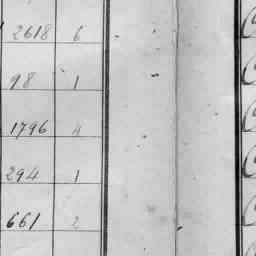 2618 6
98 1
1796 4
294 1
661 2